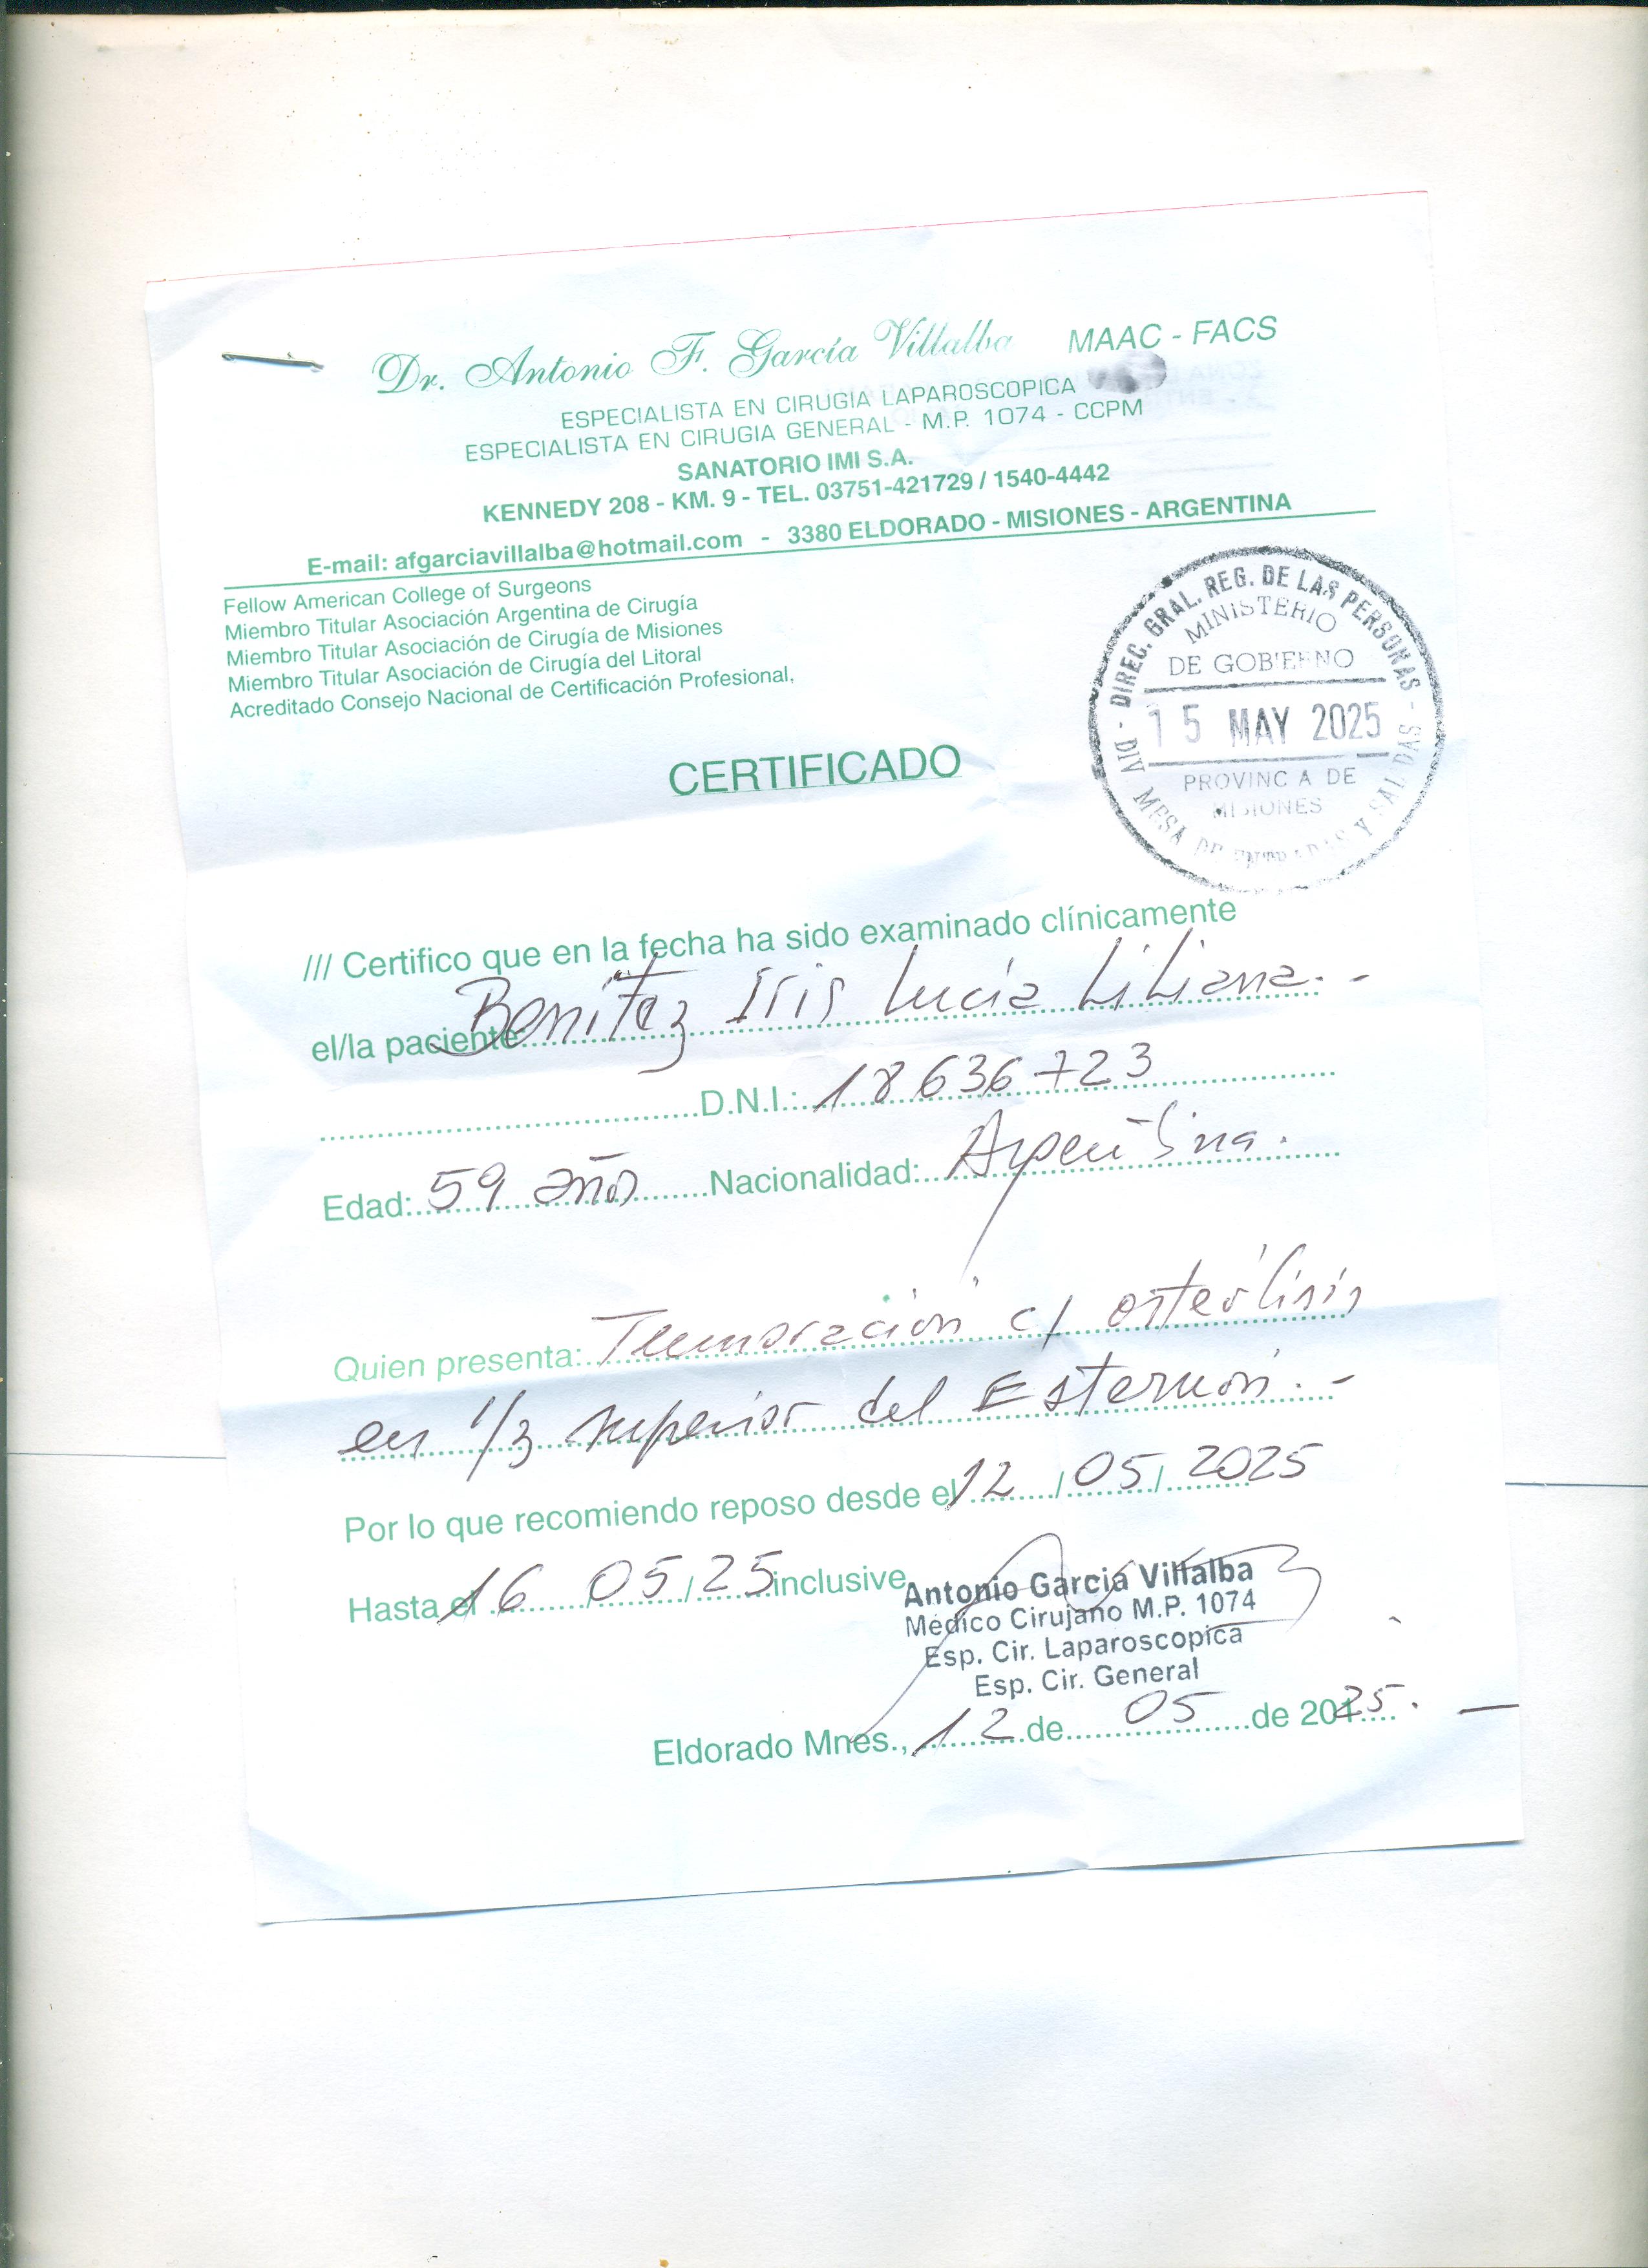 Dr. Antonio F. García Villalba MAAC - FACS
ESPECIALISTA EN CIRUGIA LAPAROSCOPICA
ESPECIALISTA EN CIRUGIA GENERAL - M.P. 1074 - CCPM
SANATORIO IMI S.A.
KENNEDY 208 - KM. 9 - TEL. 03751-421729 / 1540-4442
E-mail: afgarciavillalba@hotmail.com - 3380 ELDORADO - MISIONES - ARGENTINA
Fellow American College of Surgeons
Miembro Titular Asociación Argentina de Cirugía
Miembro Titular Asociación de Cirugía de Misiones
Miembro Titular Asociación de Cirugía del Litoral
Acreditado Consejo Nacional de Certificación Profesional,
DIREC. GRAL. REG. DE LAS PERSONAS -
MINISTERIO
DE GOBIERNO
15 MAY 2025
PROVINCIA DE
MISIONES
DIV. MESA DE ENTRADAS Y SALIDAS
CERTIFICADO
/// Certifico que en la fecha ha sido examinado clínicamente
el/la paciente: Benitez Iris Lucia Liliana.-
D.N.I.: 18636723
Edad: 59 años Nacionalidad: Argentina.
Quien presenta: Tumoración c/ osteólisis
en 1/3 superior del Esternón.-
Por lo que recomiendo reposo desde el 12/05/2025
Hasta el 16/05/25 inclusive.
Antonio Garcia Villalba
Médico Cirujano M.P. 1074
Esp. Cir. Laparoscopica
Esp. Cir. General
Eldorado Mnes., 12 de 05 de 2025.-